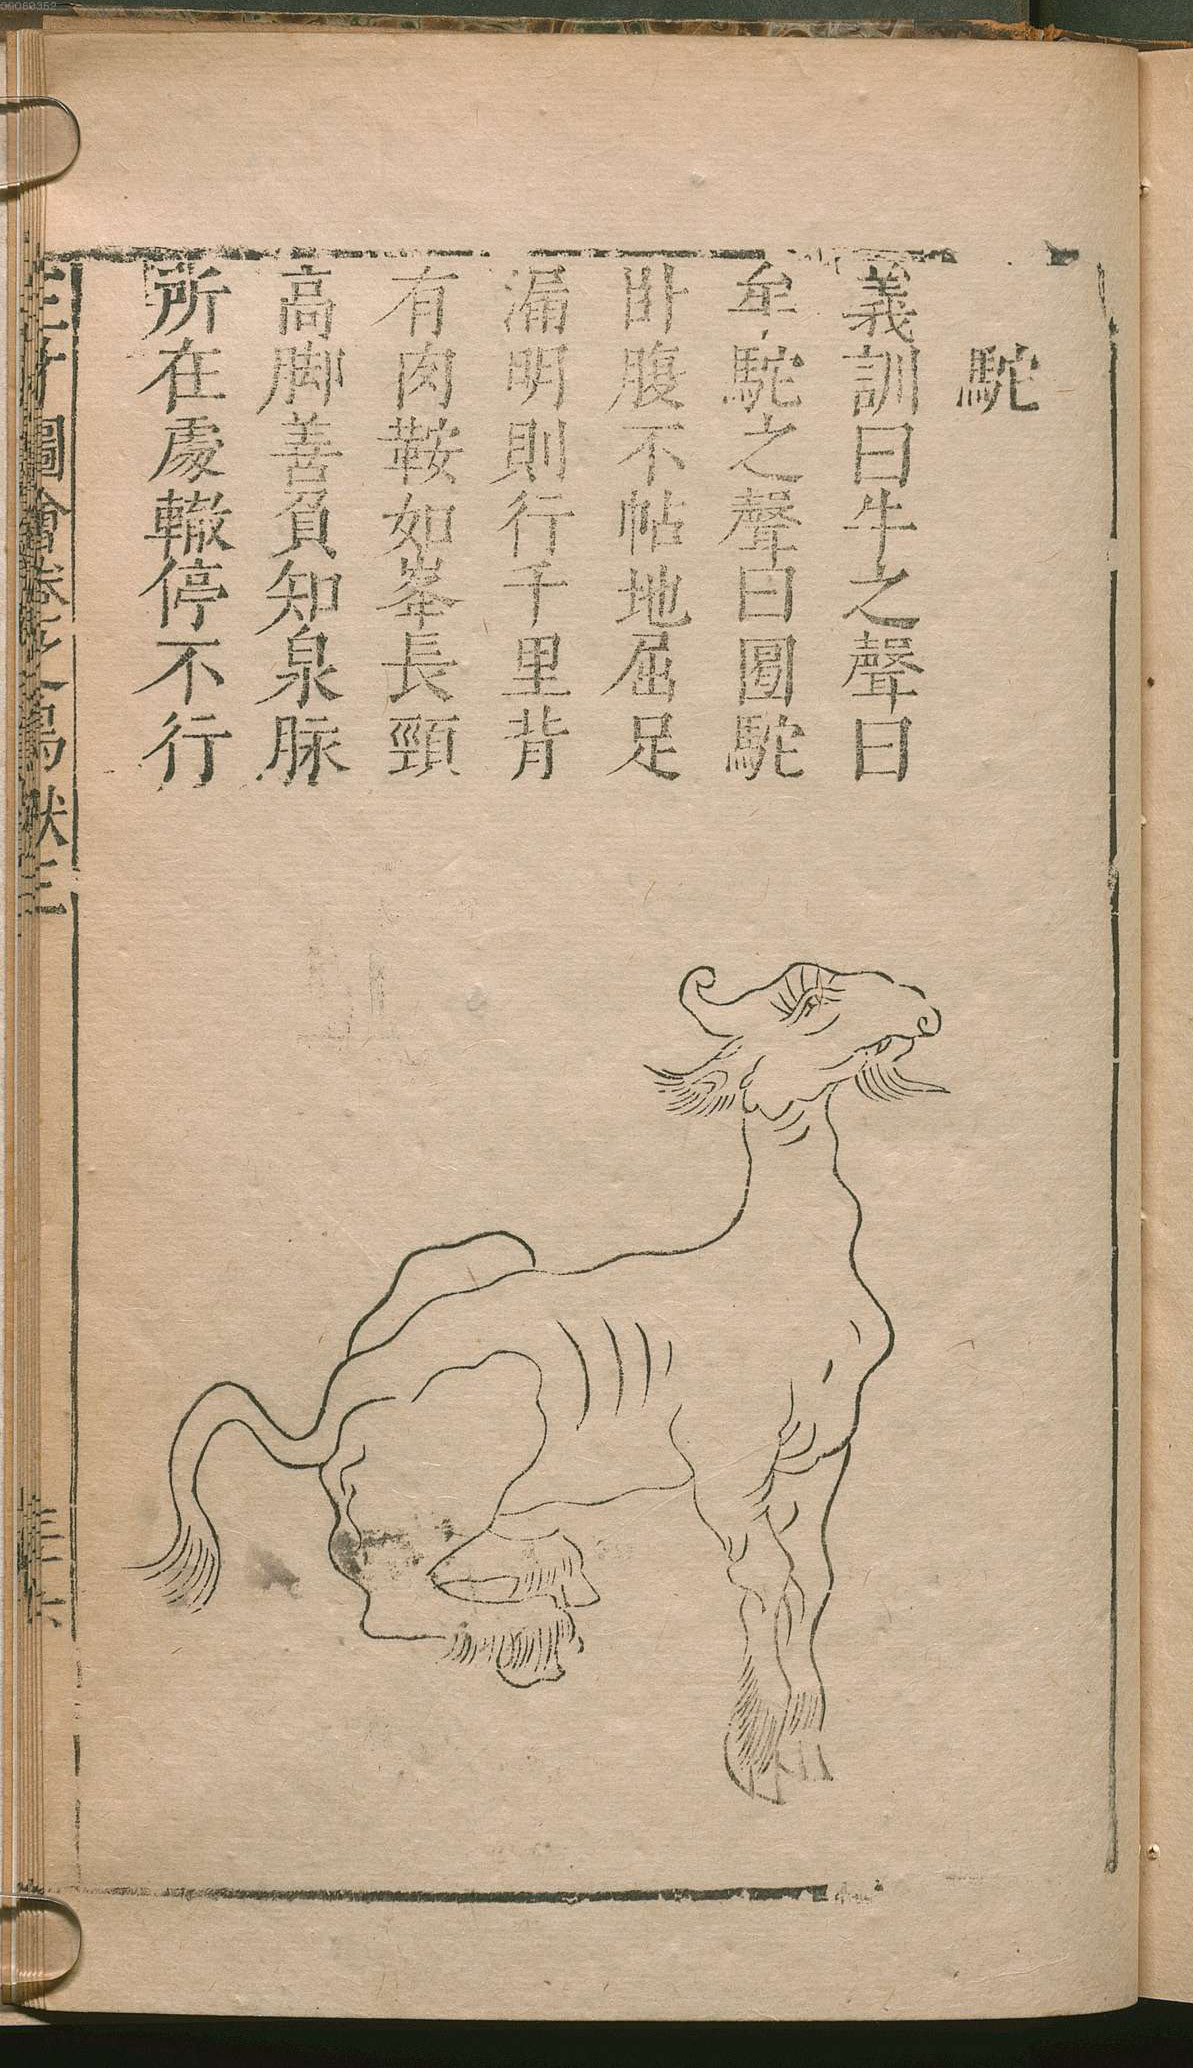 駝
義訓曰牛之聲曰
牟駝之聲曰圔駝
卧腹不帖地屈足
漏明則行千里背
有肉鞍如峯長頸
高脚善負知泉脉
所在處轍停不行
三才圖會卷之四鳥獸三
三十六
00080352